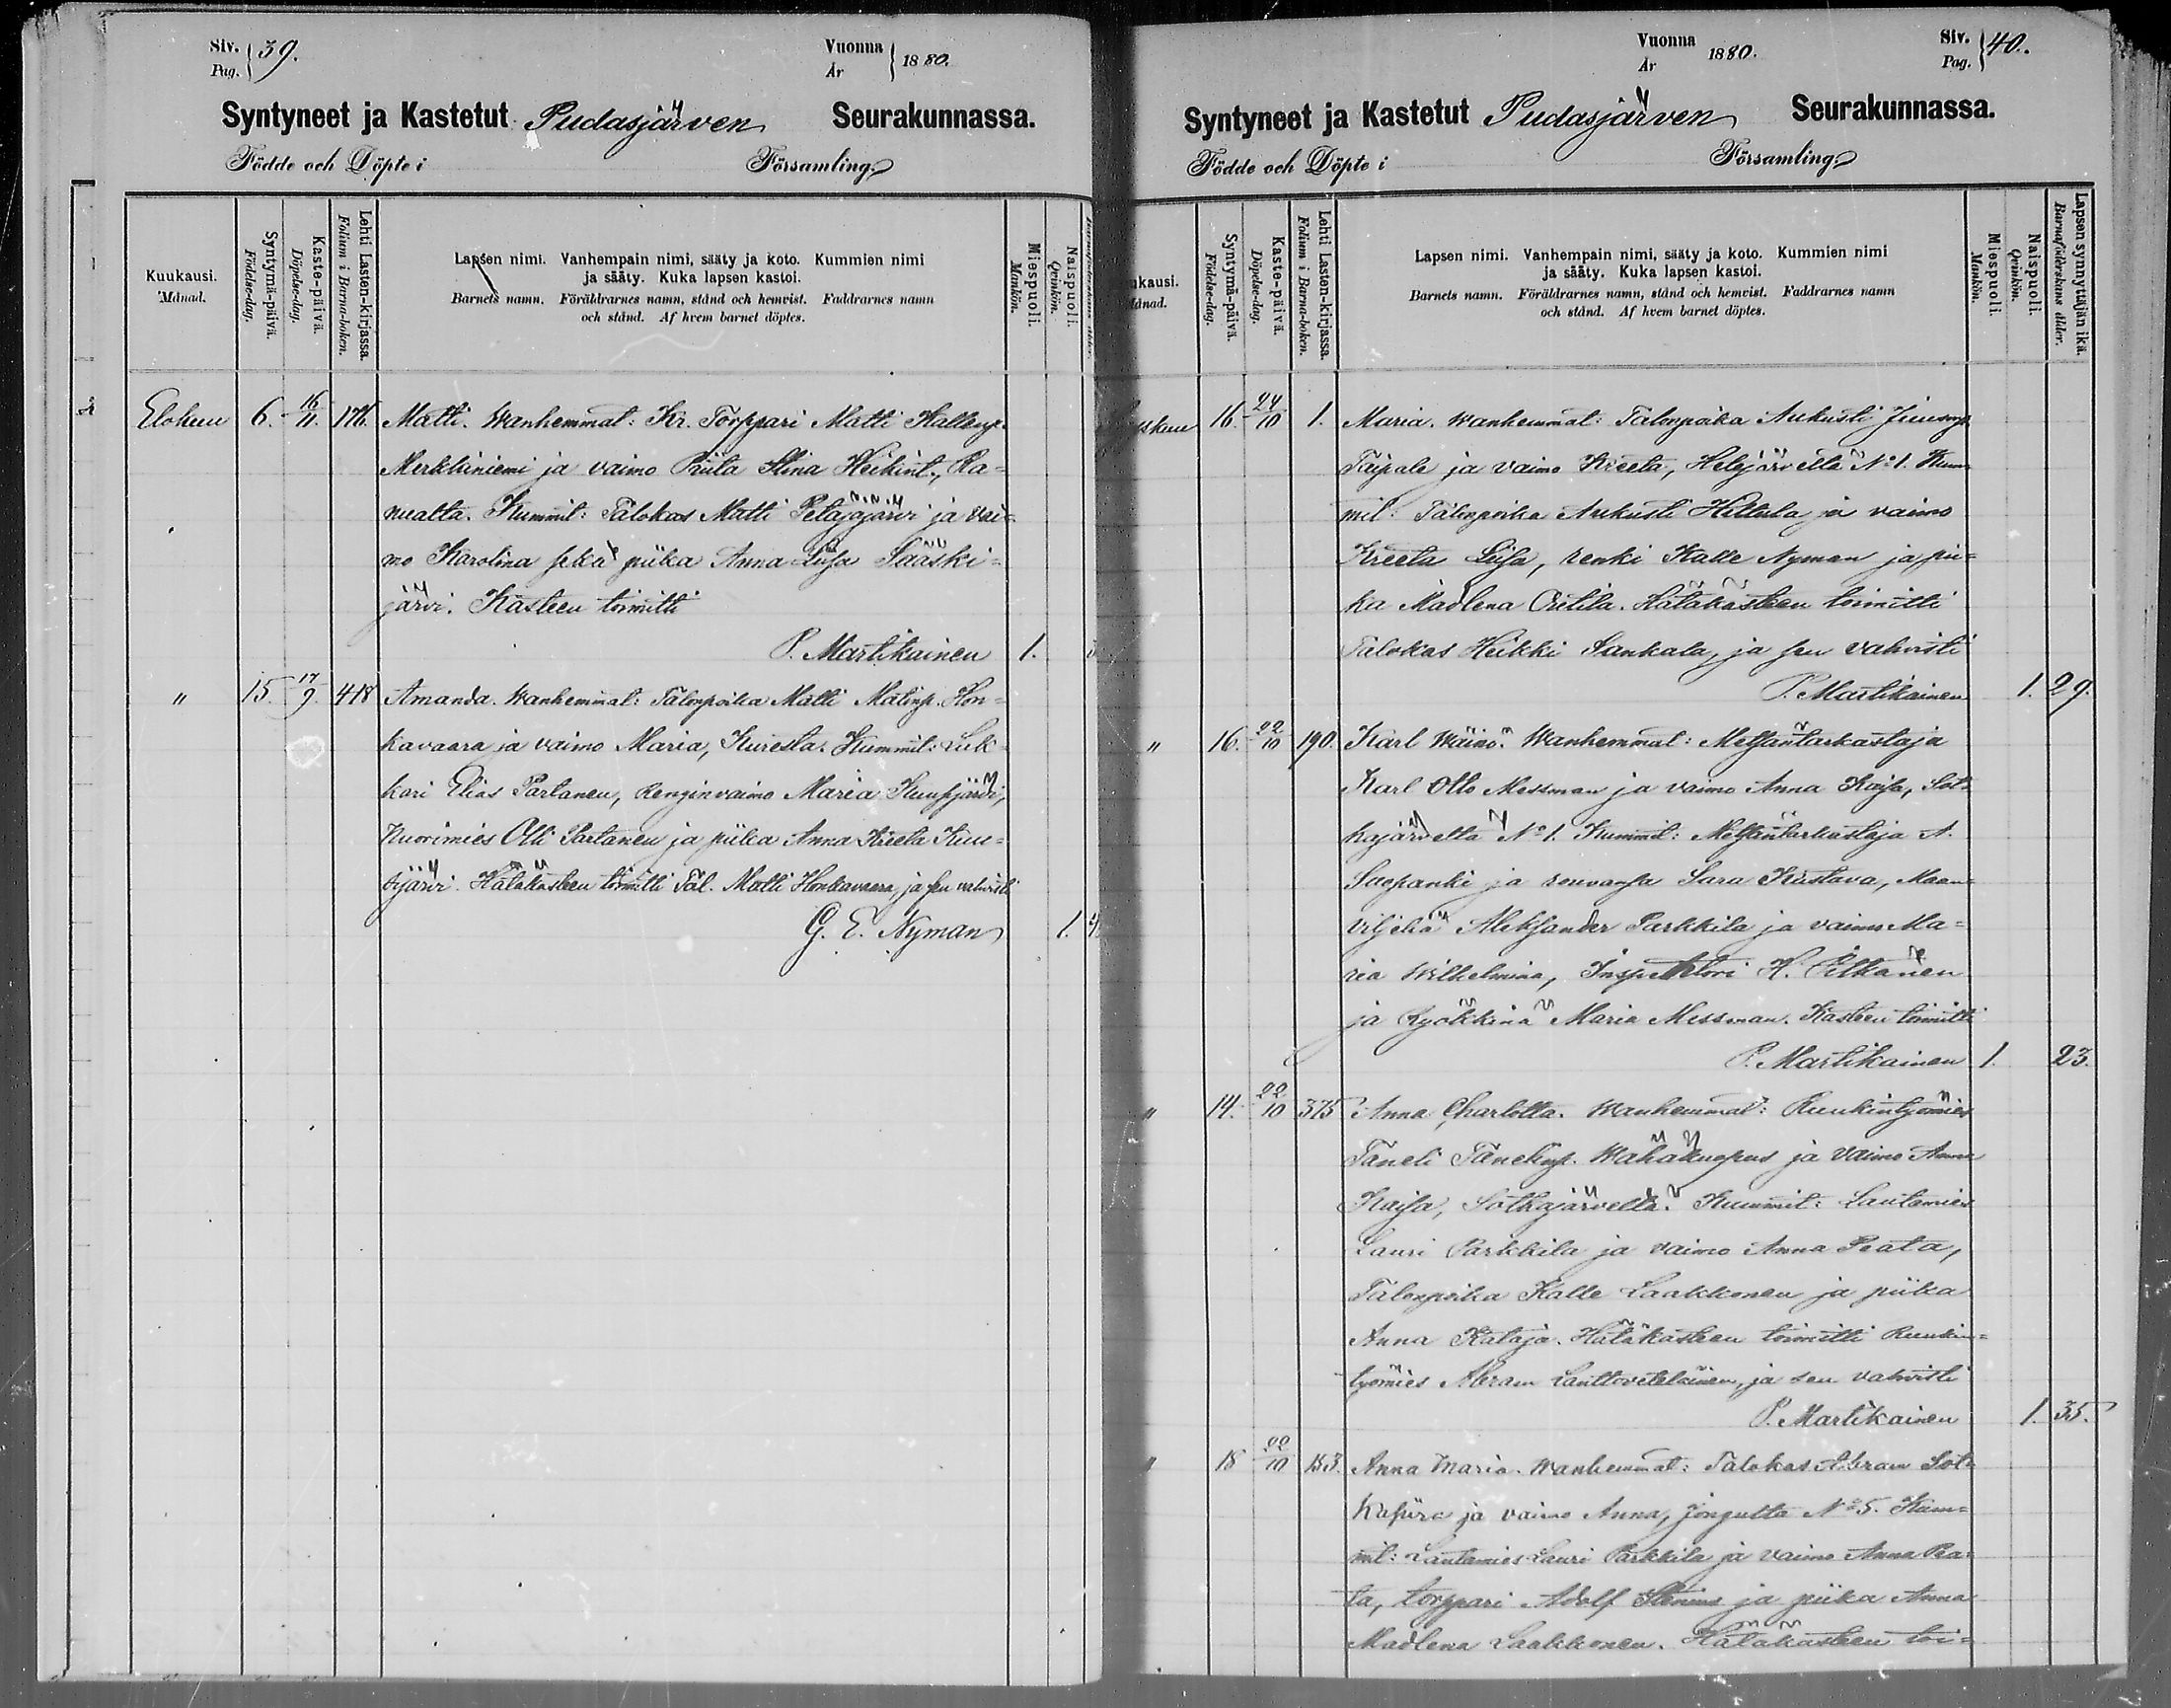 Siv. Pag. 39.
Vuonna År 1880.
Syntyneet ja Kastetut Pudasjärven Seurakunnassa.
Födde och Döpte i Församling.
Kuukausi. Månad.
Syntymä-päivä. Födelse-dag.
Kaste-päivä. Döpelse-dag.
Lehti Lasten-kirjassa. Folium i Barna-boken.
Lapsen nimi. Vanhempain nimi, sääty ja koto. Kummien nimi
ja sääty. Kuka lapsen kastoi.
Barnets namn. Föräldrarnes namn, stånd och hemvist. Faddrarnes namn
och stånd. Af hvem barnet döptes.
Miespuoli. Mankön.
Naispuoli. Qvinkön.
Elokuu 6. 16/11. 176. Matti. Wanhemmat: Kr. Torppari Matti Kallenp.
Merkkiniemi ja vaimo Priita Stina Heikint., Ra=
nualta. Kummit: Talokas Matti Petäjäjärvi ja vai=
mo Karolina seka piika Anna Liisa Sääski=
järvi. Kasteen toimitti
P. Martikainen 1.
" 15. 17/9. 418 Amanda. Wanhemmat: Talonpoika Matti Matinp. Hon=
kavaara ja vaimo Maria, Kuresta. Kummit: Luk
kari Elias Partanen, Renginvaimo Maria
Nuorimies Olli Partanen ja piika Anna Kreeta
järvi. Hätäkasteen toimitti Tal. Matti Honkavaara, ja sen vahvisti
G. E. Nyman 1. 4
Vuonna År 1880.
Siv. Pag. 40.
Syntyneet ja Kastetut Pudasjärven Seurakunnassa.
Födde och Döpte i Församling.
ukausi. Månad.
Syntymä-päivä. Födelse-dag.
Kaste-päivä. Döpelse-dag.
Lehti Lasten-kirjassa. Folium i Barna-boken.
Lapsen nimi. Vanhempain nimi, sääty ja koto. Kummien nimi
ja sääty. Kuka lapsen kastoi.
Barnets namn. Föräldrarnes namn, stånd och hemvist. Faddrarnes namn
och stånd. Af hvem barnet döptes.
Miespuoli. Mankön.
Naispuoli. Qvinkön.
Lapsen synnyttäjän ikä. Barnaföderskans ålder.
yskuu 16. 24/10 1. Maria. Wanhemmat: Talonpoika Aukusti
Taipale ja vaimo Kreeta, Hetejärveltä No 1. Kum
mit: Talonpoika Aukusti Hiltula ja vaimo
Kreeta Liisa, renki Kalle Nyman ja pii=
ka Madlena Outila. Hätäkasteen toimitti
Talokas Heikki Sankala, ja sen vahvisti
P. Martikainen 1. 29.
" 16. 22/10 190. Karl Wäinö. Wanhemmat: Metsäntarkastaja
Karl Otto Messman ja vaimo Anna Kaisa, Sot=
kajärveltä No 1. Kummit: Metsäntarkastaja A.
ja rouvansa Sara Kustava, Maan=
viljeliä Aleksander Parkkila ja vaimo Ma=
ria Wilhelmina, Inspehtori H. Pitkänen
ja Ryökkinä Maria Messman. Kasteen toimitti
P. Martikainen 1. 23.
" 14. 22/10 375 Anna Charlotta. Wanhemmat: Ruukintyömies
Taneli Tanelinp. Wähäkuopus ja vaimo Anna
Kaisa, Sotkajärveltä. Kummit: Lautamies
Lauri Parkkila ja vaimo Anna Peata,
Talonpoika Kalle Laakkonen ja piika
Anna Kataja. Hätäkasteen toimitti Ruukin=
työmies Abram ja sen vahvisti
P. Martikainen 1. 35.
" 18 22/10 183. Anna Maria. Wanhemmat: Talokas Abram Sot=
ja vaimo Anna, Jongulta No 5. Kum=
mit: Lautamies Lauri Parkkila ja vaimo Anna Pea=
ta, torppari Adolf Stenius ja piika Anna
Madlena Laakkonen. Hätäkasteen toi=